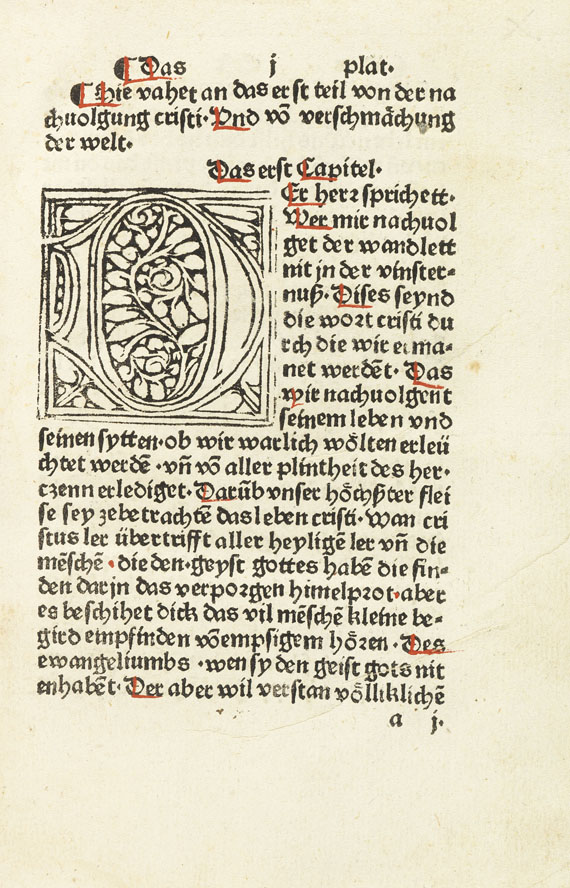 ¶ Das j plat.
¶ Hie vahet an das erst teil von der na
chuolgung cristi. Vnd vō verschmächung
der welt.
Das erst Capitel.
DEr herr sprichett.
Wer mir nachuol
get der wandlett
nit jn der vinster-
nuß. Dises seynd
die wort cristi du
rch die wir erma-
net werdēt. Das
wir nachuolgent
seinem leben vnd
seinen sytten. ob wir warlich wölten erleü
chtet werdē. vn̄ vō aller plintheit des her-
czenn erlediget. Darūb vnser höchster flei
se sey zebetrachtē das leben cristi. Wan cri
stus ler übertrifft aller heyligē ler vn̄ die
mēschē. die den geyst gottes habē die fin-
den darjn das verporgen himelprot. aber
es beschihet dick das vil mēschē kleine be-
gird empfinden vō empsigem hören. Des
ewangeliumbs. wen sy den geist gots nit
enhabēt. Der aber wil verstan völliklichē
a j.